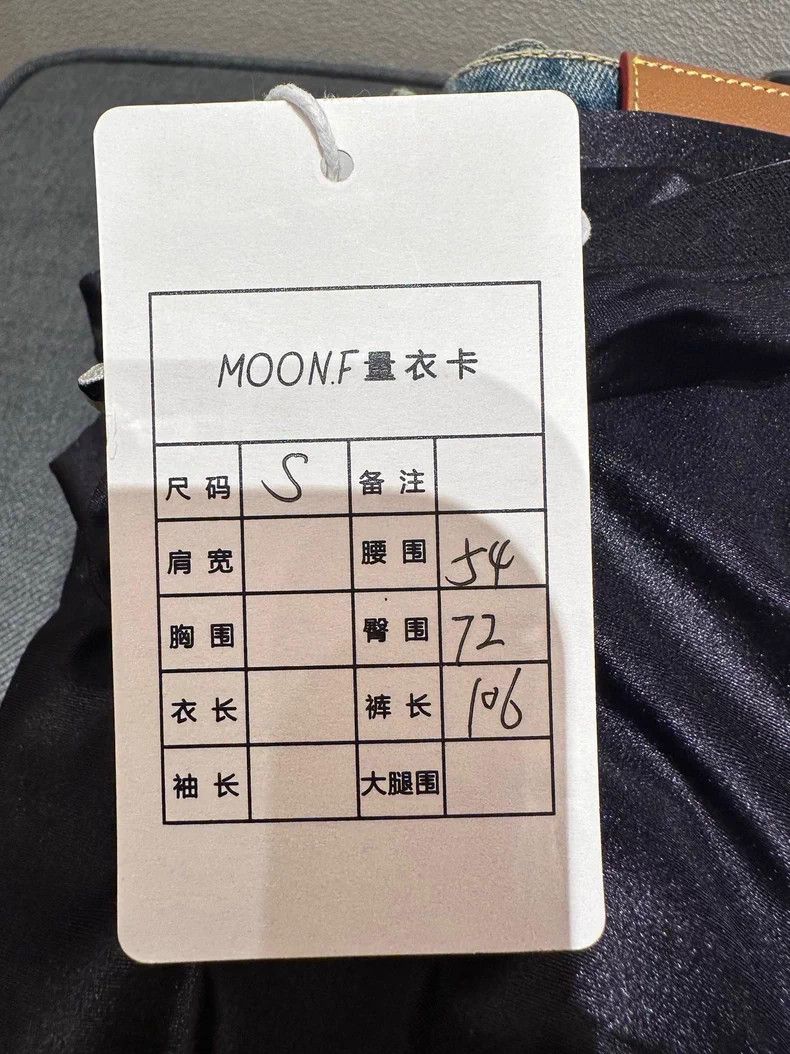 MOON.F量衣卡
尺码 S 备注
肩宽 腰围 54
胸围 臀围 72
衣长 裤长 106
袖长 大腿围